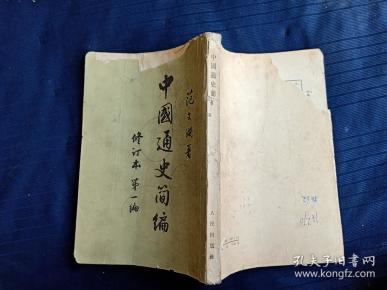 中國通史简編
范文瀾著
修订本 第一編
中國通史簡編
人民出版社
孔夫子旧书网